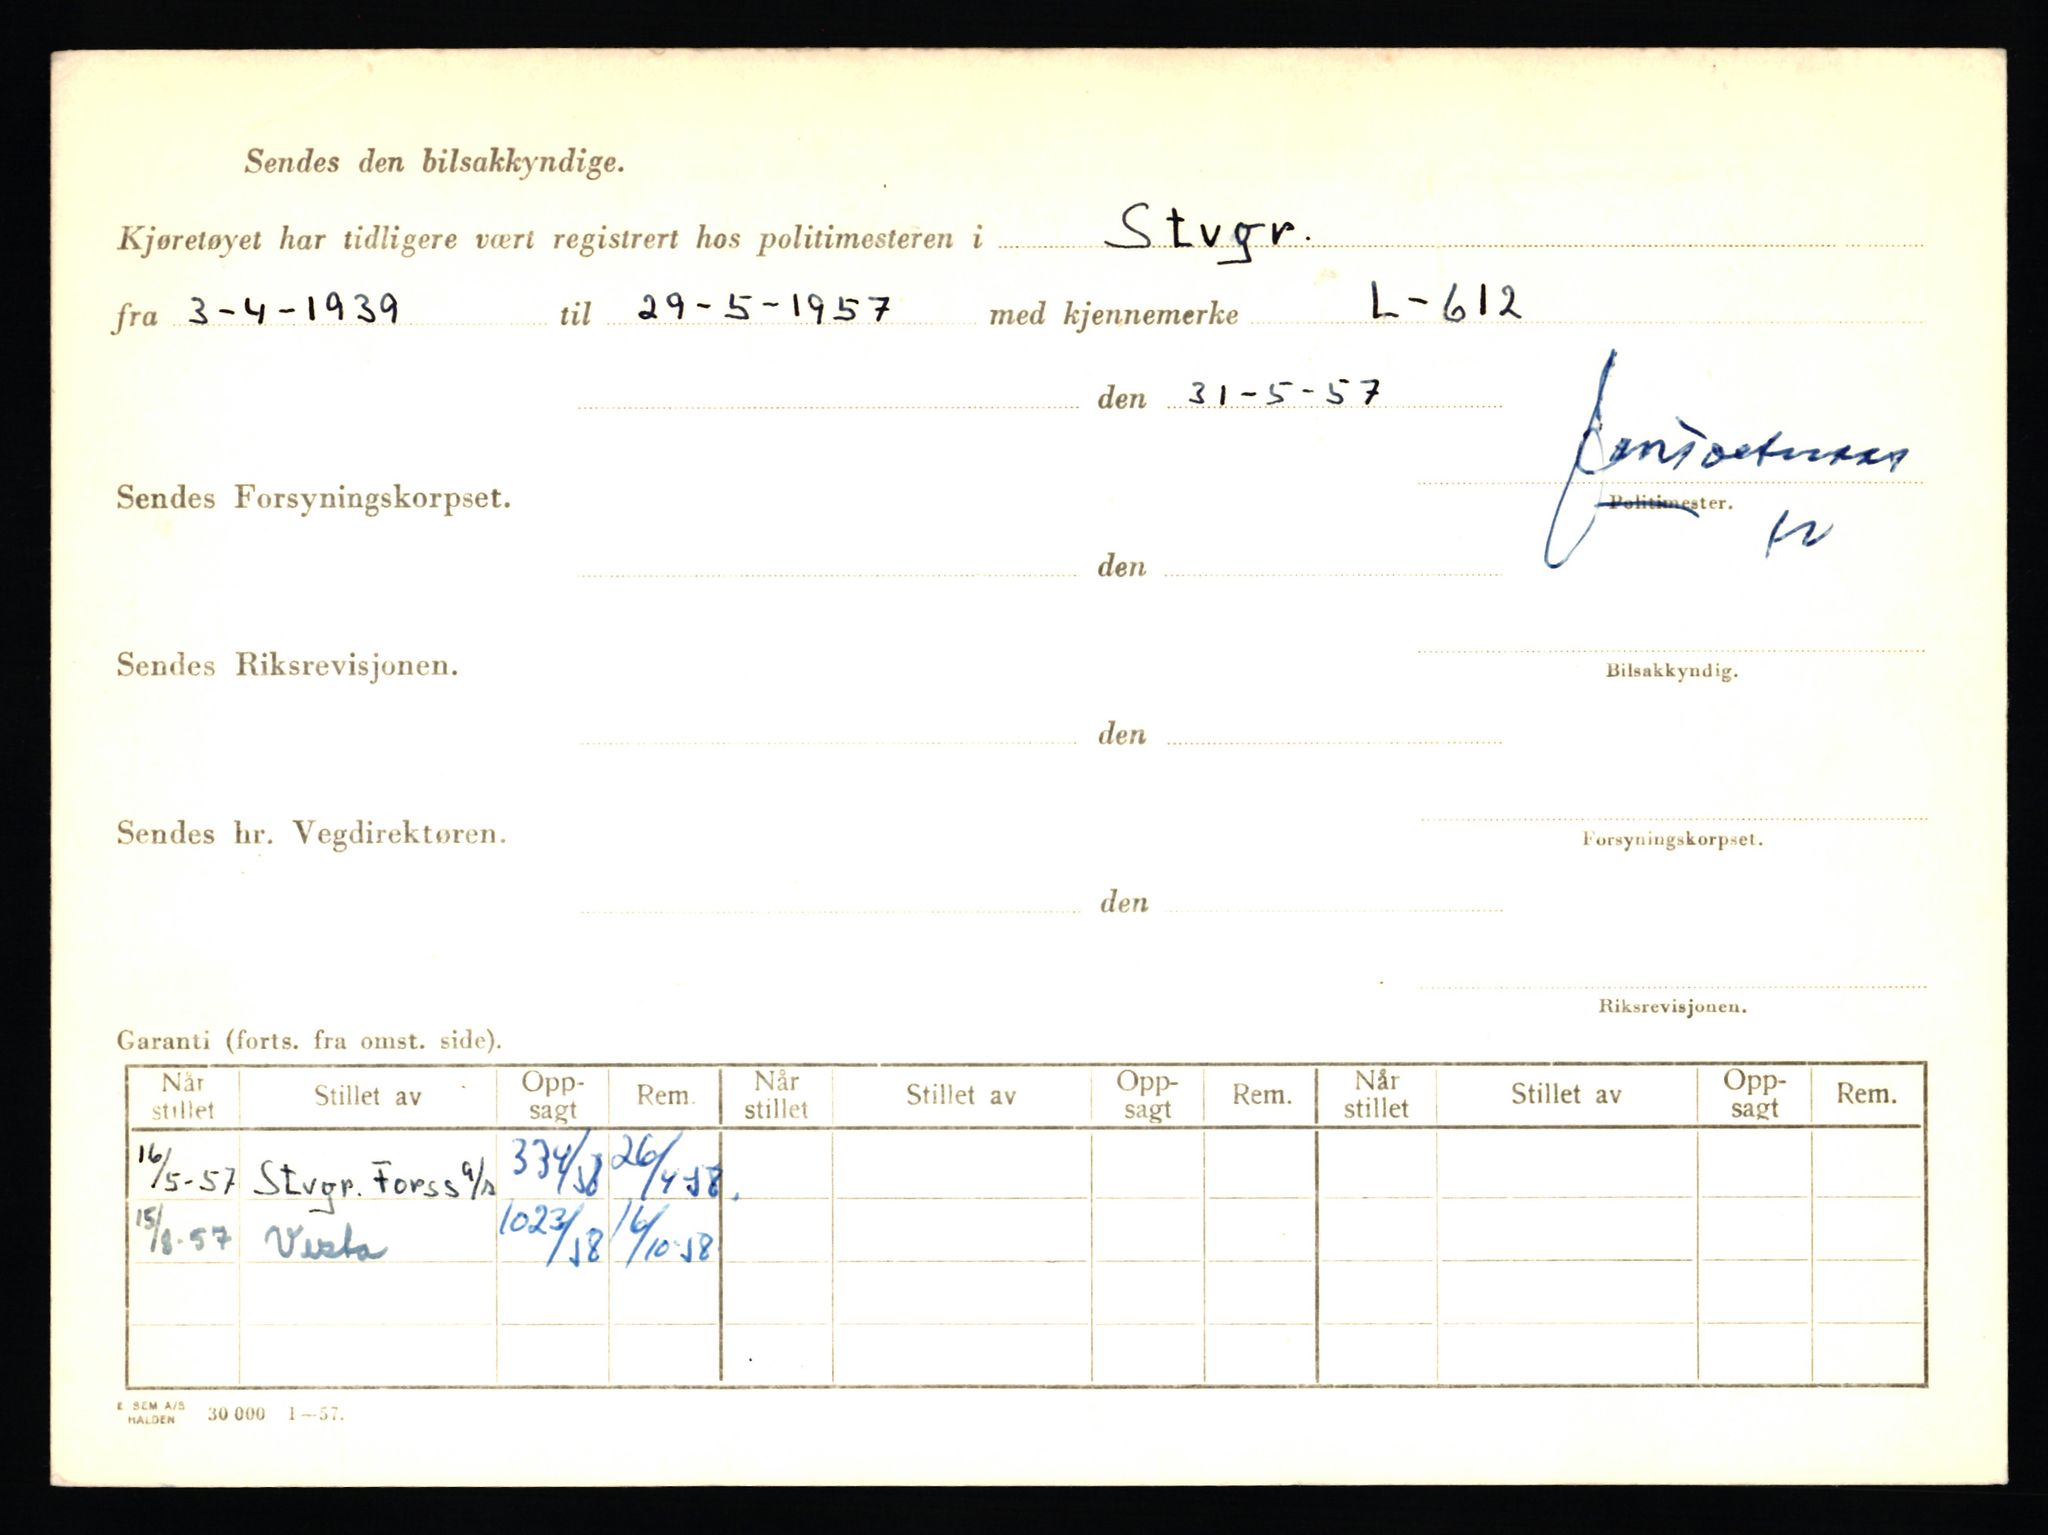 Sendes den bilsakkyndige.
Kjøretøyet har tidligere vært registrert hos politimesteren i Stvgr.
fra 3-4-1939 til 29-5-1957 med kjennemerke L-612
den 31-5-57
Sendes Forsyningskorpset.
Politimester.
den
Sendes Riksrevisjonen.
Bilsakkyndig.
den
Sendes hr. Vegdirektøren.
Forsyningskorpset.
den
Riksrevisjonen.
Garanti (forts. fra omst. side).
Når stillet Stillet av Opp-sagt Rem. Når stillet Stillet av Opp-sagt Rem. Når stillet Stillet av Opp-sagt Rem.
16/5-57 Stvgr. Forss a/s 334/58 26/4-58.
15/8-57 Vesta 1023/58 16/10-58
E. SEM A/S HALDEN 30 000 1-57.